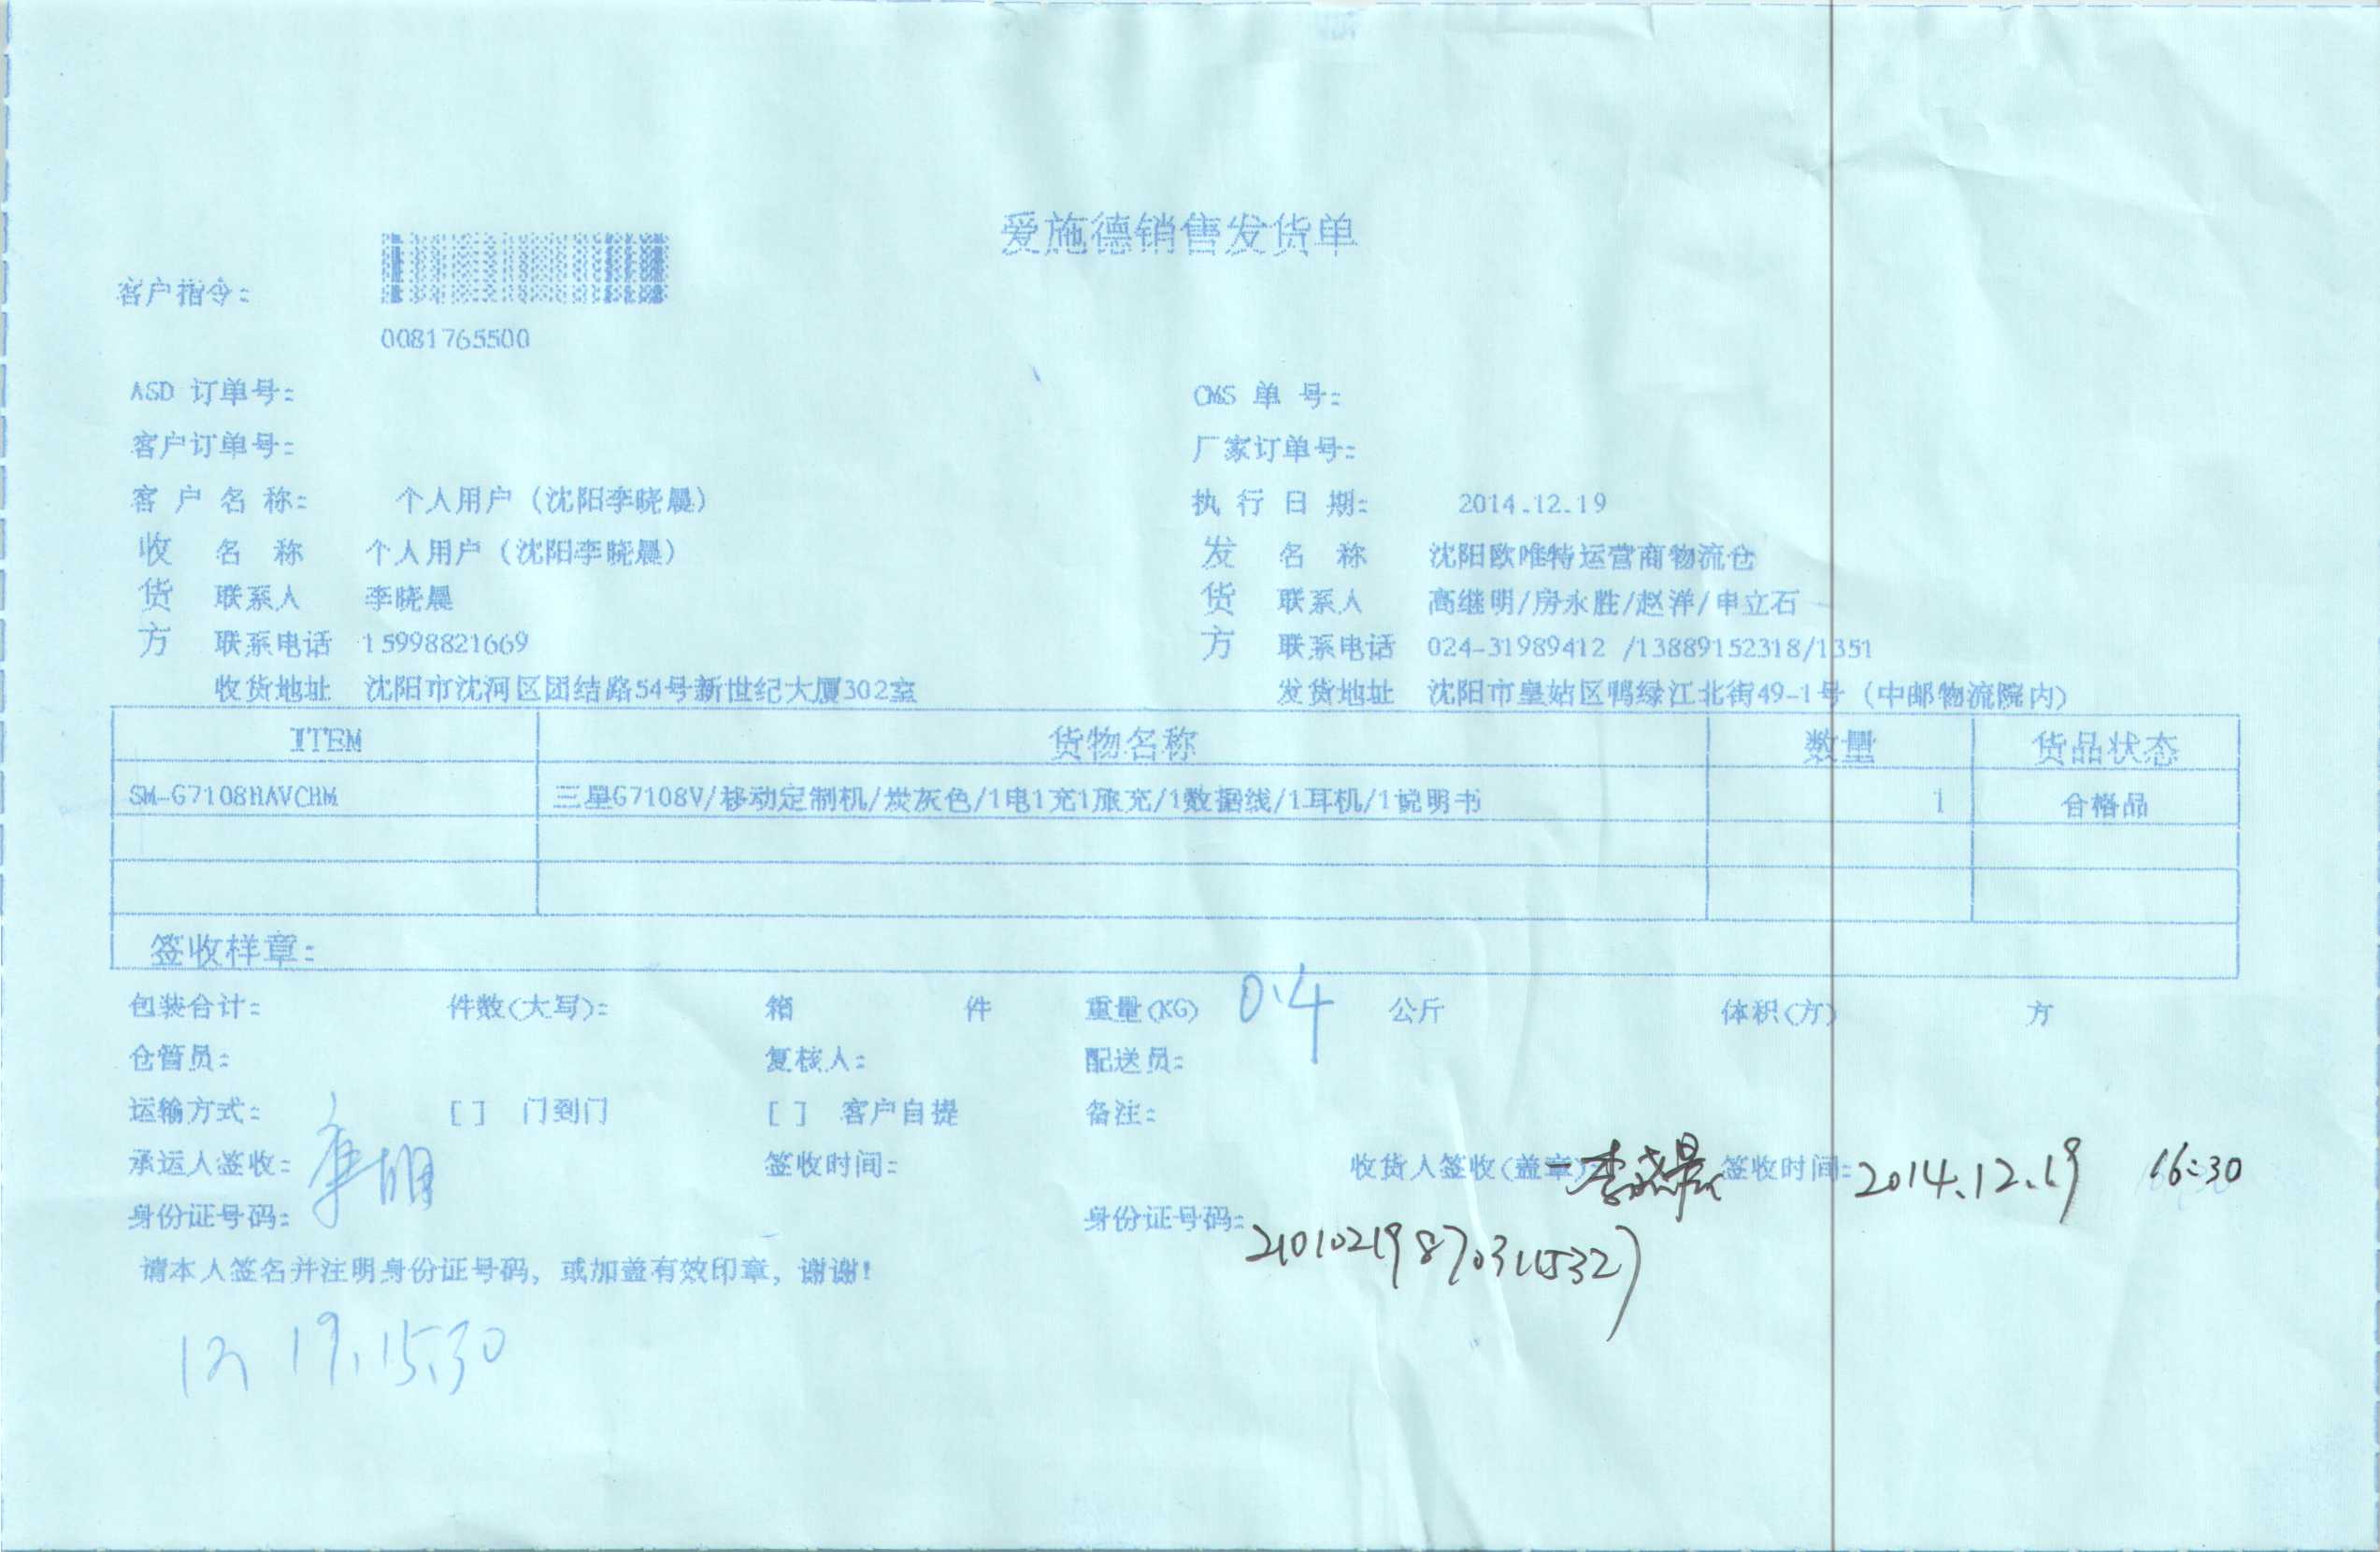 爱施德销售发货单
客户指令:
0081765500
ASD 订单号: CMS 单 号:
客户订单号: 厂家订单号:
客 户 名 称: 个人用户(沈阳李晓晨) 执 行 日 期: 2014.12.19
收 名 称 个人用户(沈阳李晓晨) 发 名 称 沈阳欧唯特运营商物流仓
货 联系人 李晓晨 货 联系人 高继明/房永胜/赵洋/申立石
方 联系电话 15998821669 方 联系电话 024-31989412 /13889152318/1351
收货地址 沈阳市沈河区团结路54号新世纪大厦302室 发货地址 沈阳市皇姑区鸭绿江北街49-1号(中邮物流院内)
ITEM 货物名称 数量 货品状态
SM-G7108HAVCHM 三星G7108V/移动定制机/炭灰色/1电1充1旅充/1数据线/1耳机/1说明书 1 合格品
签收样章:
包装合计: 件数(大写): 箱 件 重量(KG) 0.4 公斤 体积(方) 方
仓管员: 复核人: 配送员:
运输方式: [ ] 门到门 [ ] 客户自提 备注:
承运人签收: 签收时间: 收货人签收(盖章): 李晓晨 签收时间: 2014.12.19 16:30
身份证号码: 身份证号码: 210102198703115327
请本人签名并注明身份证号码, 或加盖有效印章, 谢谢!
19.15.30